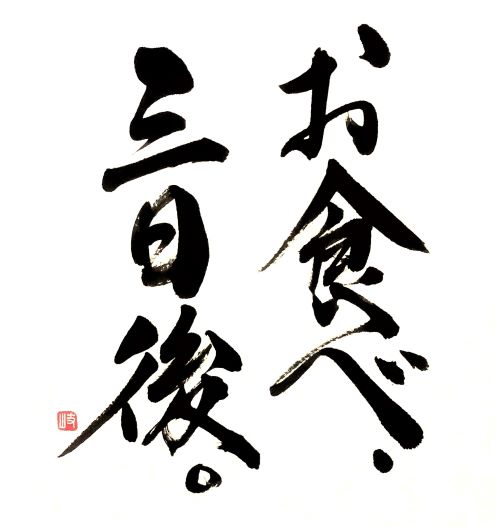 お食べ、
三日後。